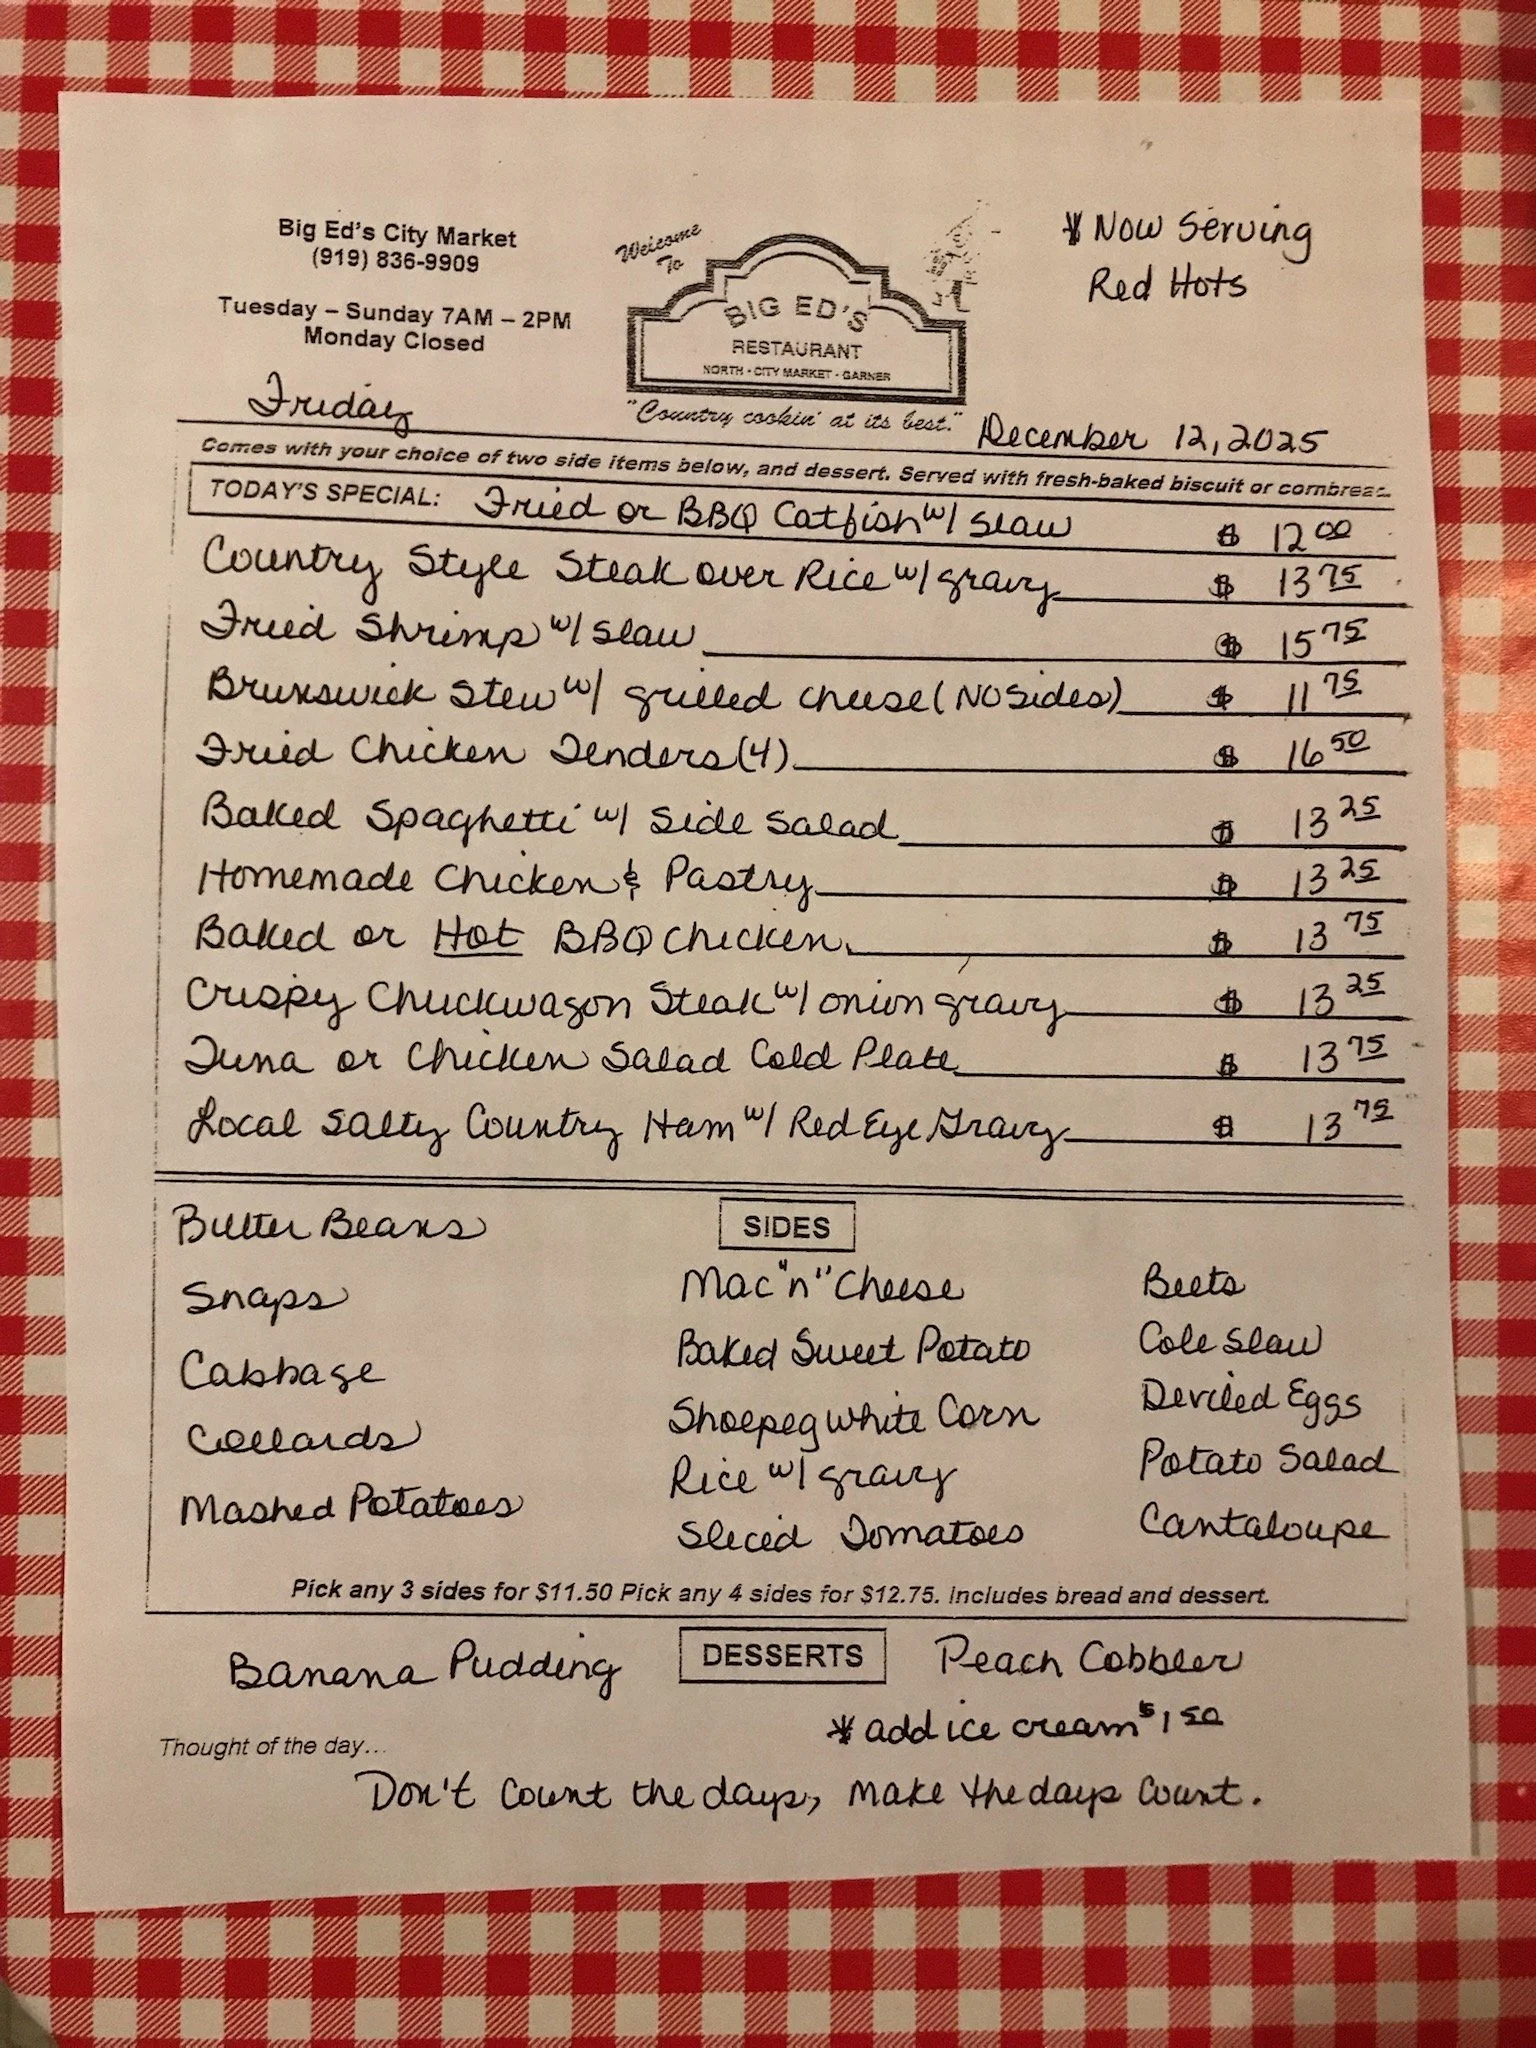 Big Ed's City Market
(919) 836-9909
Tuesday – Sunday 7AM – 2PM
Monday Closed
Welcome
To
BIG ED'S
RESTAURANT
NORTH - CITY MARKET - GARNER
"Country cookin' at its best."
* Now Serving
Red Hots
Friday
December 12, 2025
Comes with your choice of two side items below, and dessert. Served with fresh-baked biscuit or cornbread.
TODAY'S SPECIAL: Fried or BBQ Catfish w/ slaw $ 12 00
Country Style Steak over Rice w/ gravy $ 13 75
Fried Shrimp w/ slaw $ 15 75
Brunswick Stew w/ grilled cheese (NO Sides) $ 11 75
Fried Chicken Tenders (4) $ 16 50
Baked Spaghetti w/ Side Salad $ 13 25
Homemade Chicken & Pastry $ 13 25
Baked or Hot BBQ Chicken $ 13 75
Crispy Chuckwagon Steak w/ onion gravy $ 13 25
Tuna or Chicken Salad Cold Plate $ 13 75
Local Salty Country Ham w/ Red Eye Gravy $ 13 75
SIDES
Butter Beans
Snaps
Cabbage
Collards
Mashed Potatoes
Mac "n" Cheese
Baked Sweet Potato
Shoepeg White Corn
Rice w/ gravy
Sliced Tomatoes
Beets
Cole Slaw
Deviled Eggs
Potato Salad
Cantaloupe
Pick any 3 sides for $11.50 Pick any 4 sides for $12.75. Includes bread and dessert.
DESSERTS
Banana Pudding
Peach Cobbler
* add ice cream $1 50
Thought of the day...
Don't count the days, make the days count.